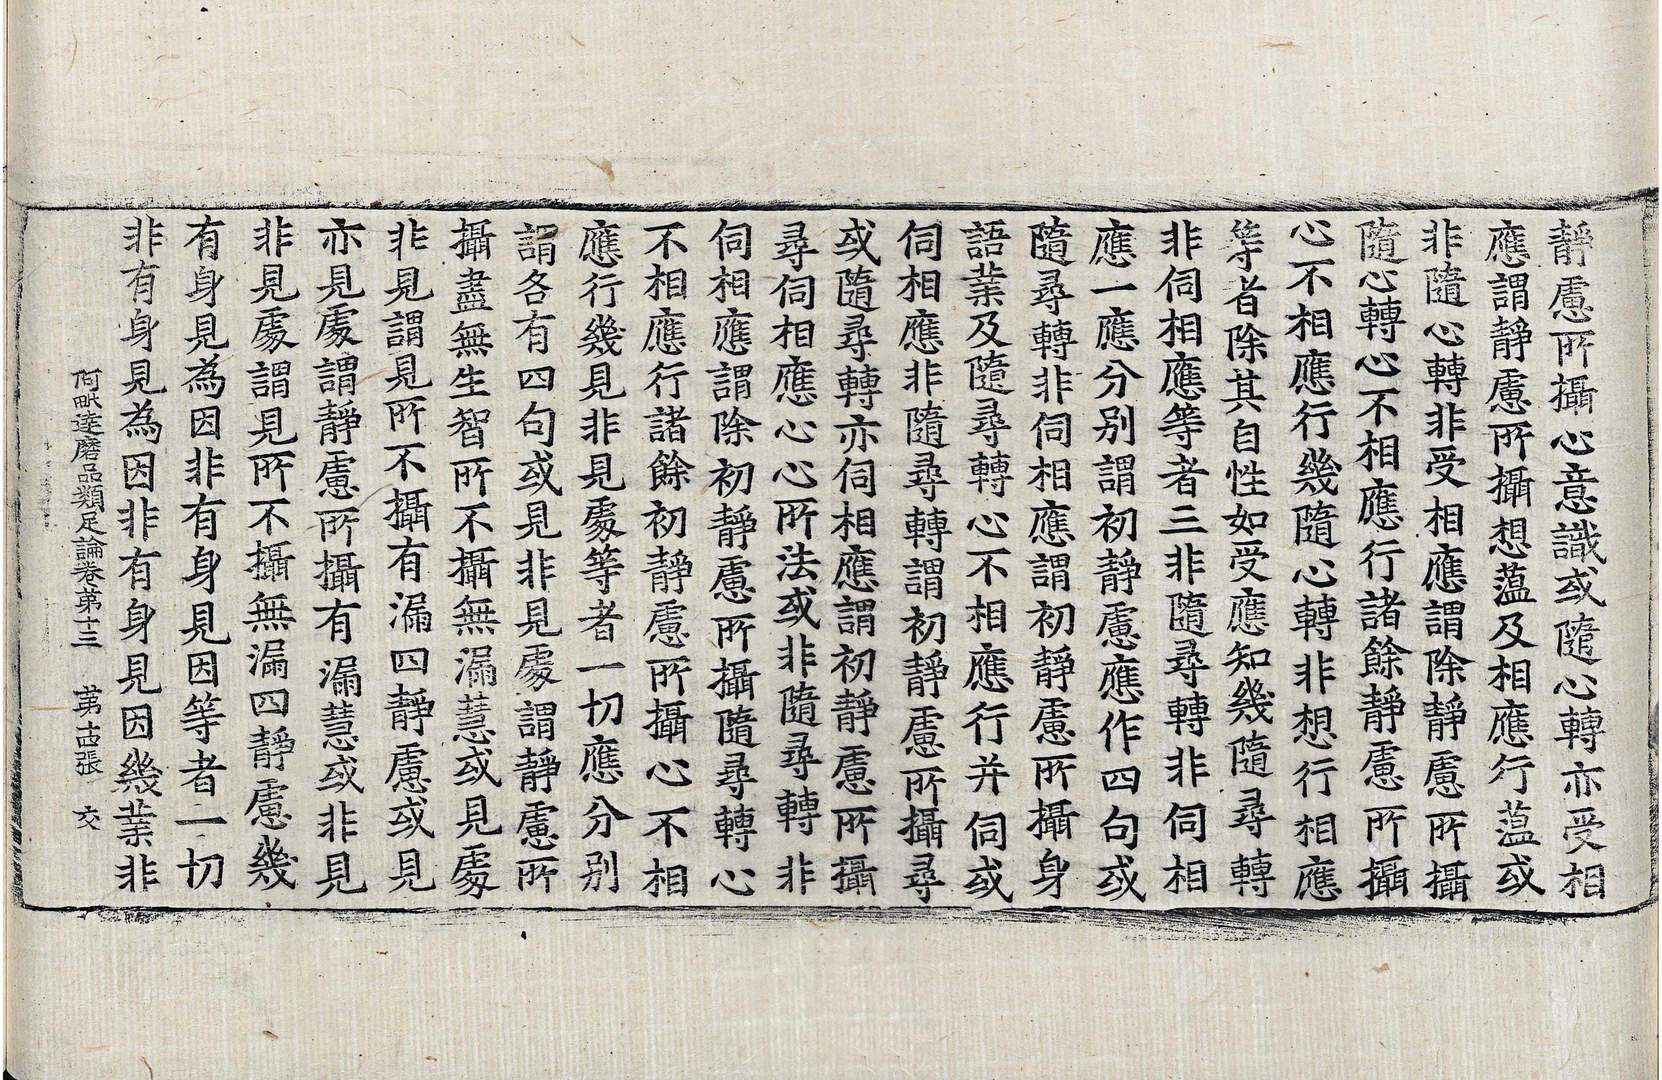 靜慮所攝心意識或隨心轉亦受相
應謂靜慮所攝想薀及相應行薀或
非隨心轉非受相應謂除靜慮所攝
隨心轉心不相應行諸餘靜慮所攝
心不相應行幾隨心轉非想行相應
等者除其自性如受應知幾隨尋轉
非伺相應等者三非隨尋轉非伺相
應一應分別謂初靜慮應作四句或
隨尋轉非伺相應謂初靜慮所攝身
語業及隨尋轉心不相應行并伺或
伺相應非隨尋轉謂初靜慮所攝尋
或隨尋轉亦伺相應謂初靜慮所攝
尋伺相應心心所法或非隨尋轉非
伺相應謂除初靜慮所攝隨尋轉心
不相應行諸餘初靜慮所攝心不相
應行幾見非見處等者一切應分別
謂各有四句或見非見處謂靜慮所
攝盡無生智所不攝無漏慧或見處
非見謂見所不攝有漏四靜慮或見
亦見處謂靜慮所攝有漏慧或非見
非見處謂見所不攝無漏四靜慮幾
有身見為因非有身見因等者一切
非有身見為因非有身見因幾業非
阿毗達磨品類足論卷第十三 第古張 交